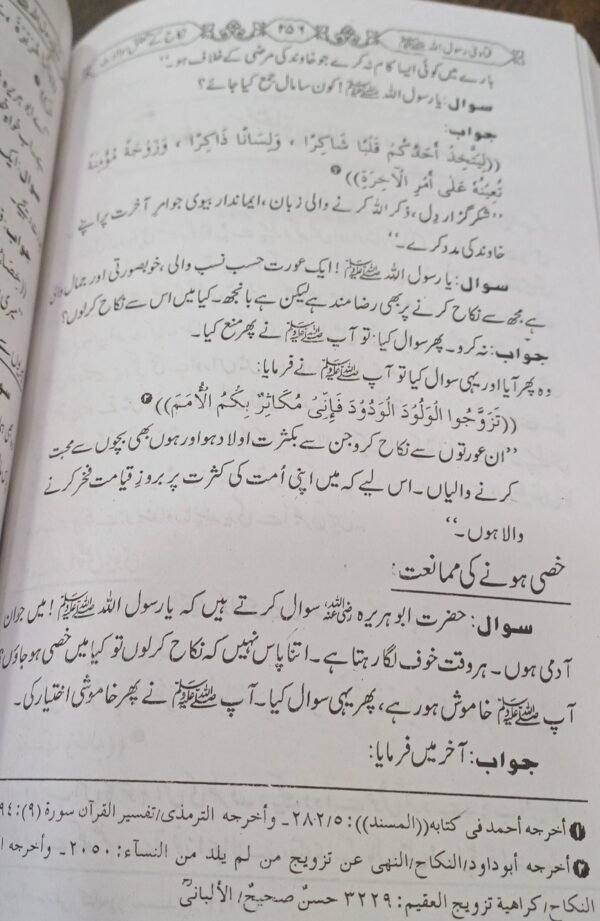 فتاویٰ رسول اللہ ﷺ ۲۵۶ نکاح کے متعلق سوالات
بارے میں کوئی ایسا کام نہ کرے جو خاوند کی مرضی کے خلاف ہو۔‘‘
سوال: یا رسول اللہ ﷺ! کون سا مال جمع کیا جائے؟
جواب:
((لِيَتَّخِذْ أَحَدُكُمْ قَلْبًا شَاكِرًا ، وَلِسَانًا ذَاكِرًا ، وَزَوْجَةً مُؤْمِنَةً
تُعِينُهُ عَلَى أَمْرِ الْآخِرَةِ))❶
’’شکر گزار دل، ذکر اللہ کرنے والی زبان، ایماندار بیوی جو امرِ آخرت پر اپنے
خاوند کی مدد کرے۔‘‘
سوال: یا رسول اللہ ﷺ! ایک عورت حسب نسب والی، خوبصورتی اور جمال والی
ہے مجھ سے نکاح کرنے پر بھی رضا مند ہے لیکن ہے بانجھ۔ کیا میں اس سے نکاح کرلوں؟
جواب: نہ کرو۔ پھر سوال کیا: تو آپ ﷺ نے پھر منع کیا۔
وہ پھر آیا اور یہی سوال کیا تو آپ ﷺ نے فرمایا:
((تَزَوَّجُوا الْوَلُوْدَ الْوَدُوْدَ فَإِنِّيْ مُكَاثِرٌ بِكُمُ الْأُمَمَ))❷
’’ان عورتوں سے نکاح کرو جن سے بکثرت اولاد ہو اور ہوں بھی بچوں سے محبت
کرنے والیاں۔ اس لیے کہ میں اپنی اُمت کی کثرت پر بروزِ قیامت فخر کرنے
والا ہوں۔‘‘
خصی ہونے کی ممانعت:
سوال: حضرت ابو ہریرہ رضی اللہ عنہ سوال کرتے ہیں کہ یا رسول اللہ ﷺ! میں جوان
آدمی ہوں۔ ہر وقت خوف لگا رہتا ہے۔ اتنا پاس نہیں کہ نکاح کرلوں تو کیا میں خصی ہوجاؤں؟
آپ ﷺ خاموش ہو رہے، پھر یہی سوال کیا۔ آپ ﷺ نے پھر خاموشی اختیار کی۔
جواب: آخر میں فرمایا:
❶ أخرجه أحمد في كتابه((المسند)): ٢٨٢/٥۔ وأخرجه الترمذي/تفسير القرآن سورة (٩):
❷ أخرجه أبوداود/النكاح/النهى عن تزويج من لم يلد من النسآء: ٢٠٥٠۔ وأخرجه
النكاح/كراهية تزويج العقيم: ٣٢٢٩ حسنٌ صحيحٌ/الألبانيؒ